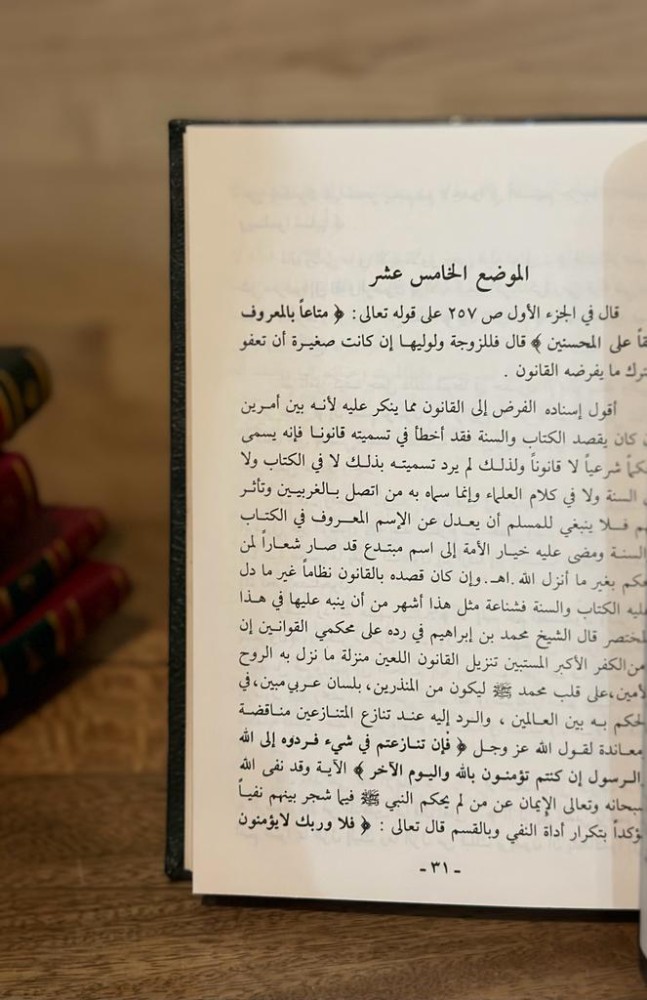 الموضع الخامس عشر
قال في الجزء الأول ص ٢٥٧ على قوله تعالى: ﴿ متاعاً بالمعروف
على المحسنين ﴾ قال فللزوجة ولوليها إن كانت صغيرة أن تعفو
ما يفرضه القانون .
أقول إسناده الفرض إلى القانون مما ينكر عليه لأنه بين أمرين
كان يقصد الكتاب والسنة فقد أخطأ في تسميته قانونا فإنه يسمى
شرعياً لا قانوناً ولذلك لم يرد تسميته بذلك لا في الكتاب ولا
السنة ولا في كلام العلماء وإنما سماه به من اتصل بالغربيين وتأثر
فلا ينبغي للمسلم أن يعدل عن الإسم المعروف في الكتاب
السنة ومضى عليه خيار الأمة إلى اسم مبتدع قد صار شعاراً لمن
بغير ما أنزل الله .اهـ. وإن كان قصده بالقانون نظاماً غير ما دل
الكتاب والسنة فشناعة مثل هذا أشهر من أن ينبه عليها في هذا
قال الشيخ محمد بن إبراهيم في رده على محكمي القوانين إن
من الكفر الأكبر المستبين تنزيل القانون اللعين منزلة ما نزل به الروح
على قلب محمد ﷺ ليكون من المنذرين، بلسان عربي مبين، في
به بين العالمين ، والرد إليه عند تنازع المتنازعين مناقضة
معاندة لقول الله عز وجل ﴿ فإن تنازعتم في شيء فردوه إلى الله
الرسول إن كنتم تؤمنون بالله واليوم الآخر ﴾ الآية وقد نفى الله
وتعالى الإيمان عن من لم يحكم النبي ﷺ فيما شجر بينهم نفياً
بتكرار أداة النفي وبالقسم قال تعالى : ﴿ فلا وربك لايؤمنون
- ٣١ -